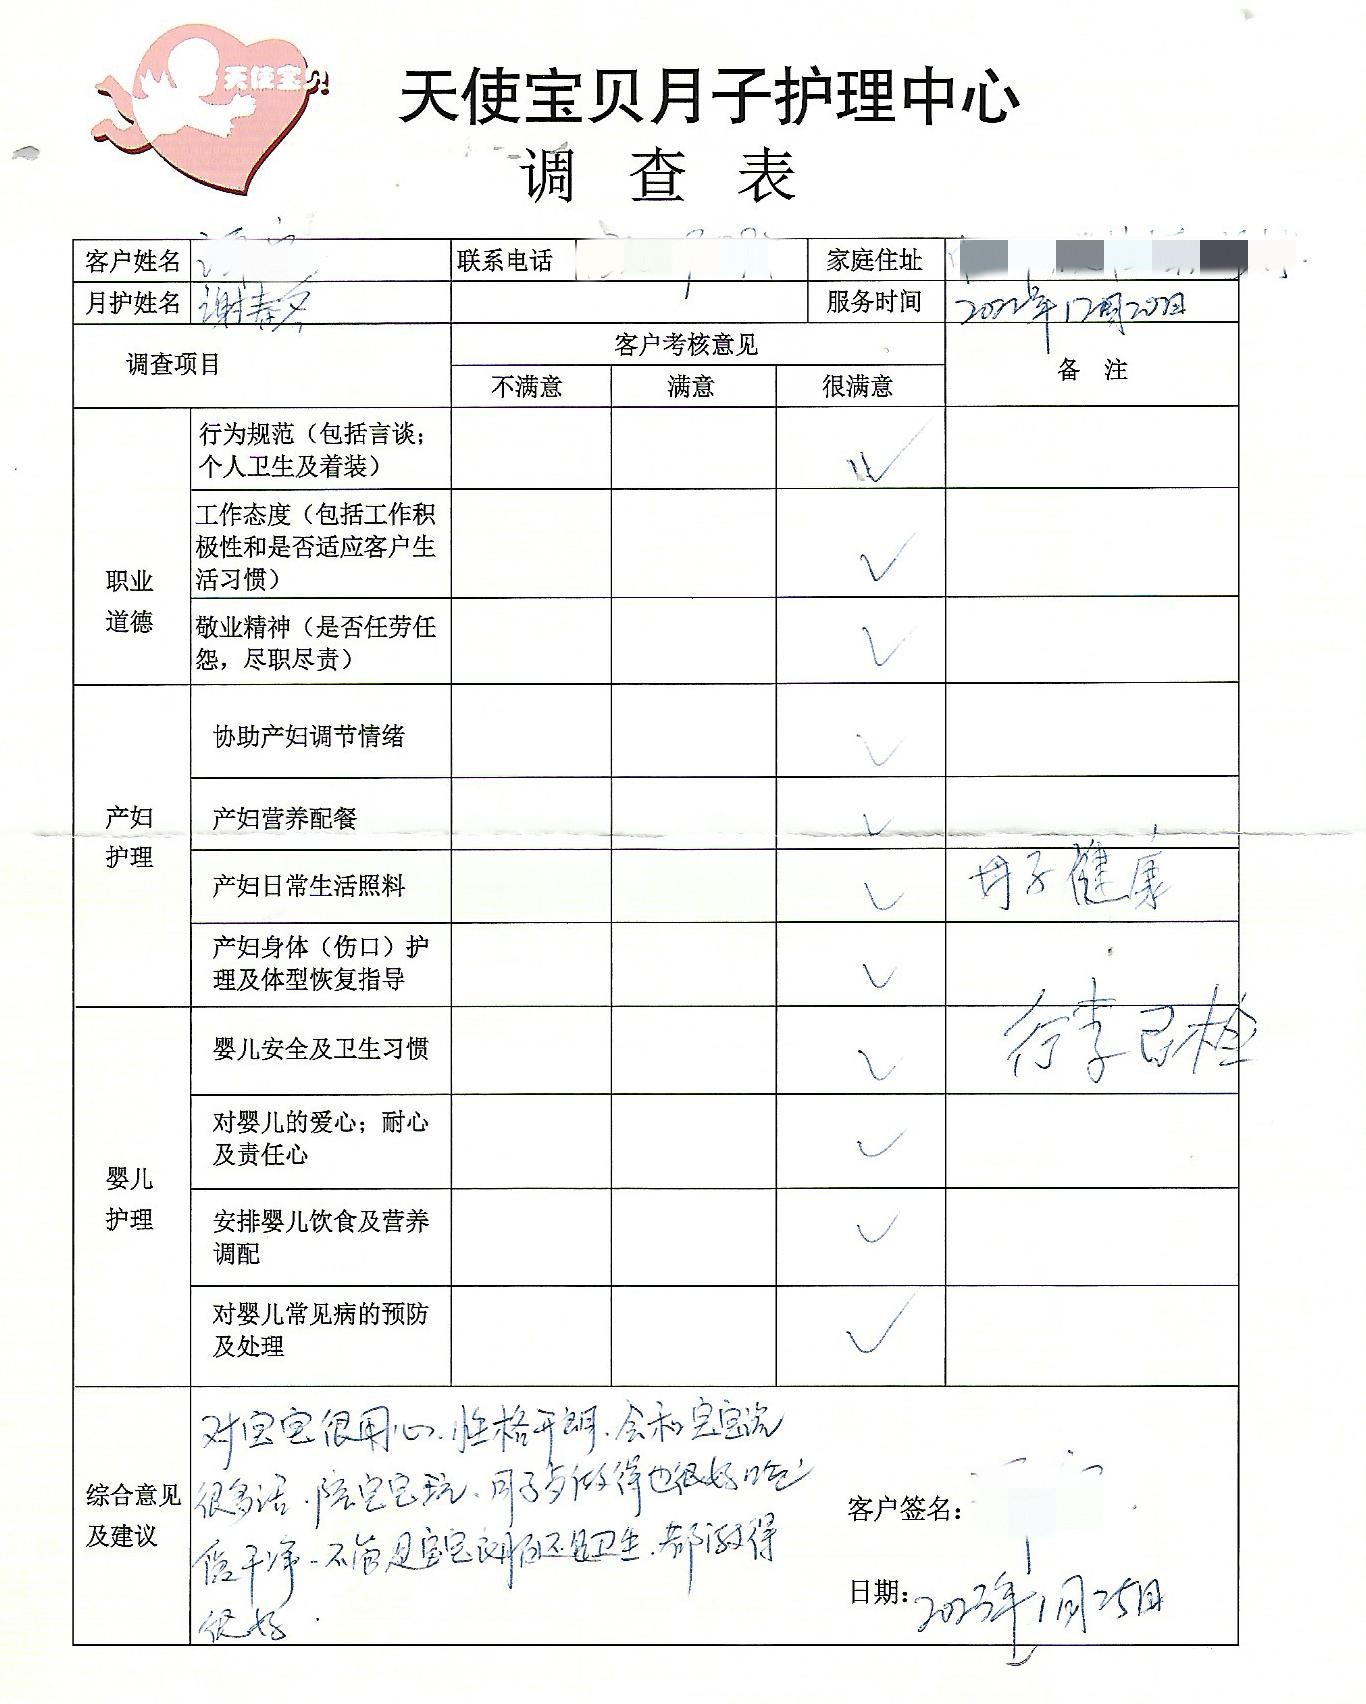 天使宝贝
天使宝贝月子护理中心
调 查 表
客户姓名 联系电话 家庭住址
月护姓名 谢春 服务时间 2022年12月20日
调查项目 客户考核意见 备 注
不满意 满意 很满意
职业
道德
行为规范（包括言谈；
个人卫生及着装）
工作态度（包括工作积
极性和是否适应客户生
活习惯）
敬业精神（是否任劳任
怨，尽职尽责）
产妇
护理
协助产妇调节情绪
产妇营养配餐
产妇日常生活照料 母子健康
产妇身体（伤口）护
理及体型恢复指导
行李已检
婴儿
护理
婴儿安全及卫生习惯
对婴儿的爱心；耐心
及责任心
安排婴儿饮食及营养
调配
对婴儿常见病的预防
及处理
综合意见
及建议
对宝宝很用心、性格开朗、会和宝宝说
很多话、陪宝宝玩、月子歺做得也很好吃
干净、不管是宝宝衣服还是卫生、都做得
很好．
客户签名：
日期：2023年1月25日